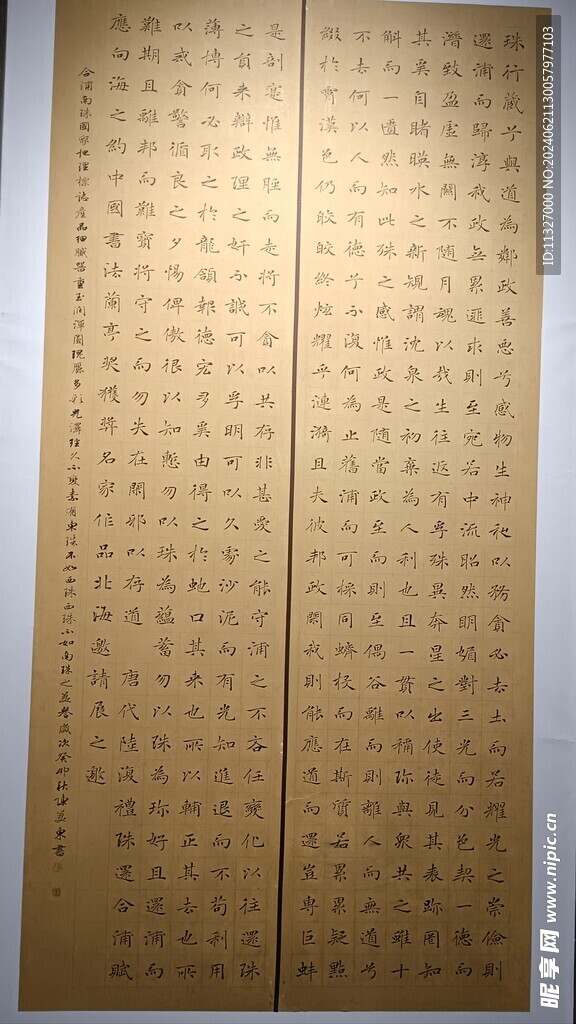 珠行藏兮與道為鄰政善惡兮感物生神私以務貪必去土而若耀光之崇儉則
還浦而歸淳我政無累匪求則至宛若中流昭然明媚對三光而分色契一德而
潛致盈虛無關不隨月魂以哉生往返有孚殊異奔星之出使徒見其表跡罔知
其奚自睹暎水之新規謂沈泉之初棄為人利也且一貫以稱珍與眾共之雖十
斛而一遺然知此珠之感惟政是隨當政至而則至偶谷離而則離人而無道兮
不去何以人而有德兮不復何為止舊浦而可採同蠐杸而在斯質若累累疑點
綴於霄漢色仍皎皎終炫耀乎漣漪且夫彼邦政閑我則能應道而還豈專巨蚌
是剖寔惟無脛而走將不貪以共存非甚愛之能守浦之不吝任變化以往還珠
之貞來辯政理之奸不誠可以孚明可以久豪沙泥而有光知進退而不苟利用
薄博何必取之於龍頷報德宏多奚由得之於虵口其來也所以輔正其去也所
以戒貪警循良之夕惕俾傲很以知慙勿以珠為蘊蓄勿以珠為珍好且還浦而
難期且離邦而難寶將守之而勿失在閑邪以存道 唐代陸復禮珠還合浦賦
應向海之約中國書法蘭亭奖獲獎名家作品北海邀請展之邀
合浦南珠國家地理標誌產品細膩器重玉润渾圓瑰麗多彩光澤經久不變素有東珠不如西珠西珠不如南珠之美譽歲次癸卯秋陳益東書
ID:11327000 NO:20240621130057977103
昵享网 www.nipic.cn